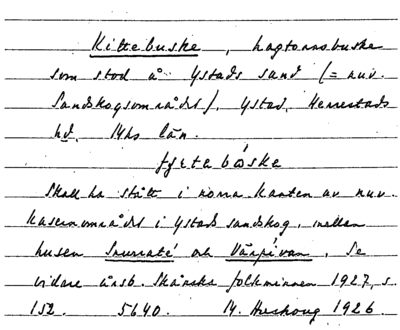 Kittebuske, hagtornsbuske
som stod å Ystads sand (= nuv.
Sandskogsområdet), Ystad, Herrestads
hd. Mhs län.
Skall ha stått i norra kanten av nuv.
kasernområdet i Ystads sandskog, mellan
husen och Se
vidare årsb. Skånska folkminnen 1927, s.
152. 5640. 1926.